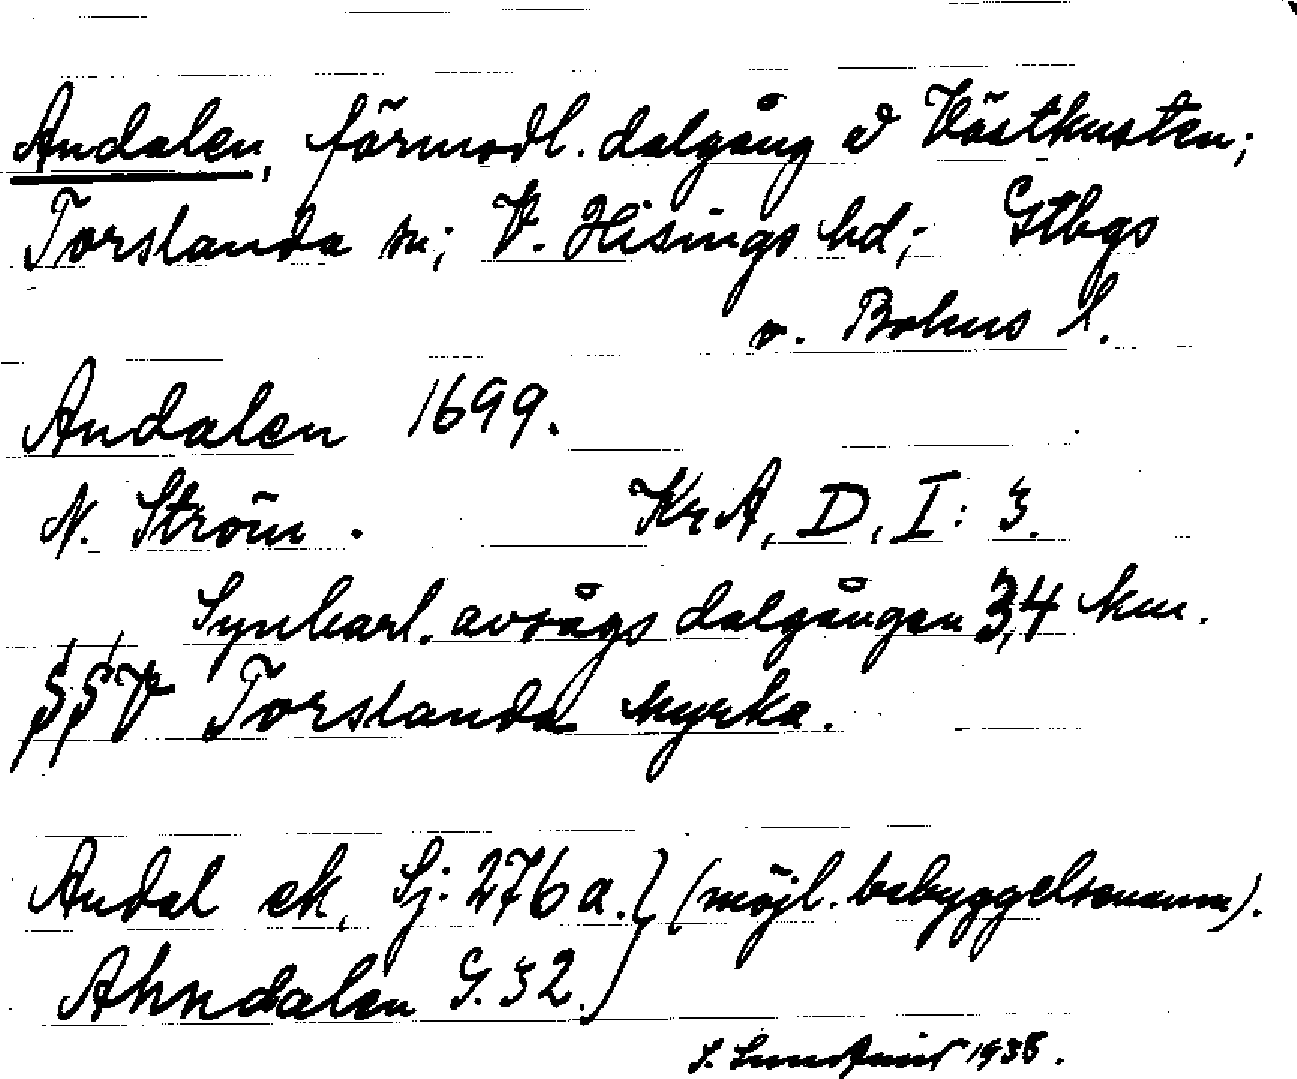 Andalen, förmodl. dalgång v Västkusten;
Torslanda sn; V. Hisings hd; Gtbgs
o. Bohus l.
Andalen 1699.
N. Ström. KrA, D, I: 3.
Synbarl. avsågs dalgången 3,4 km.
§§ V Torslanda kyrka.
Andal ek, Sj: 276 a. } (möjl. bebyggelsenamn).
Ahndalen G. 32. }
1938.